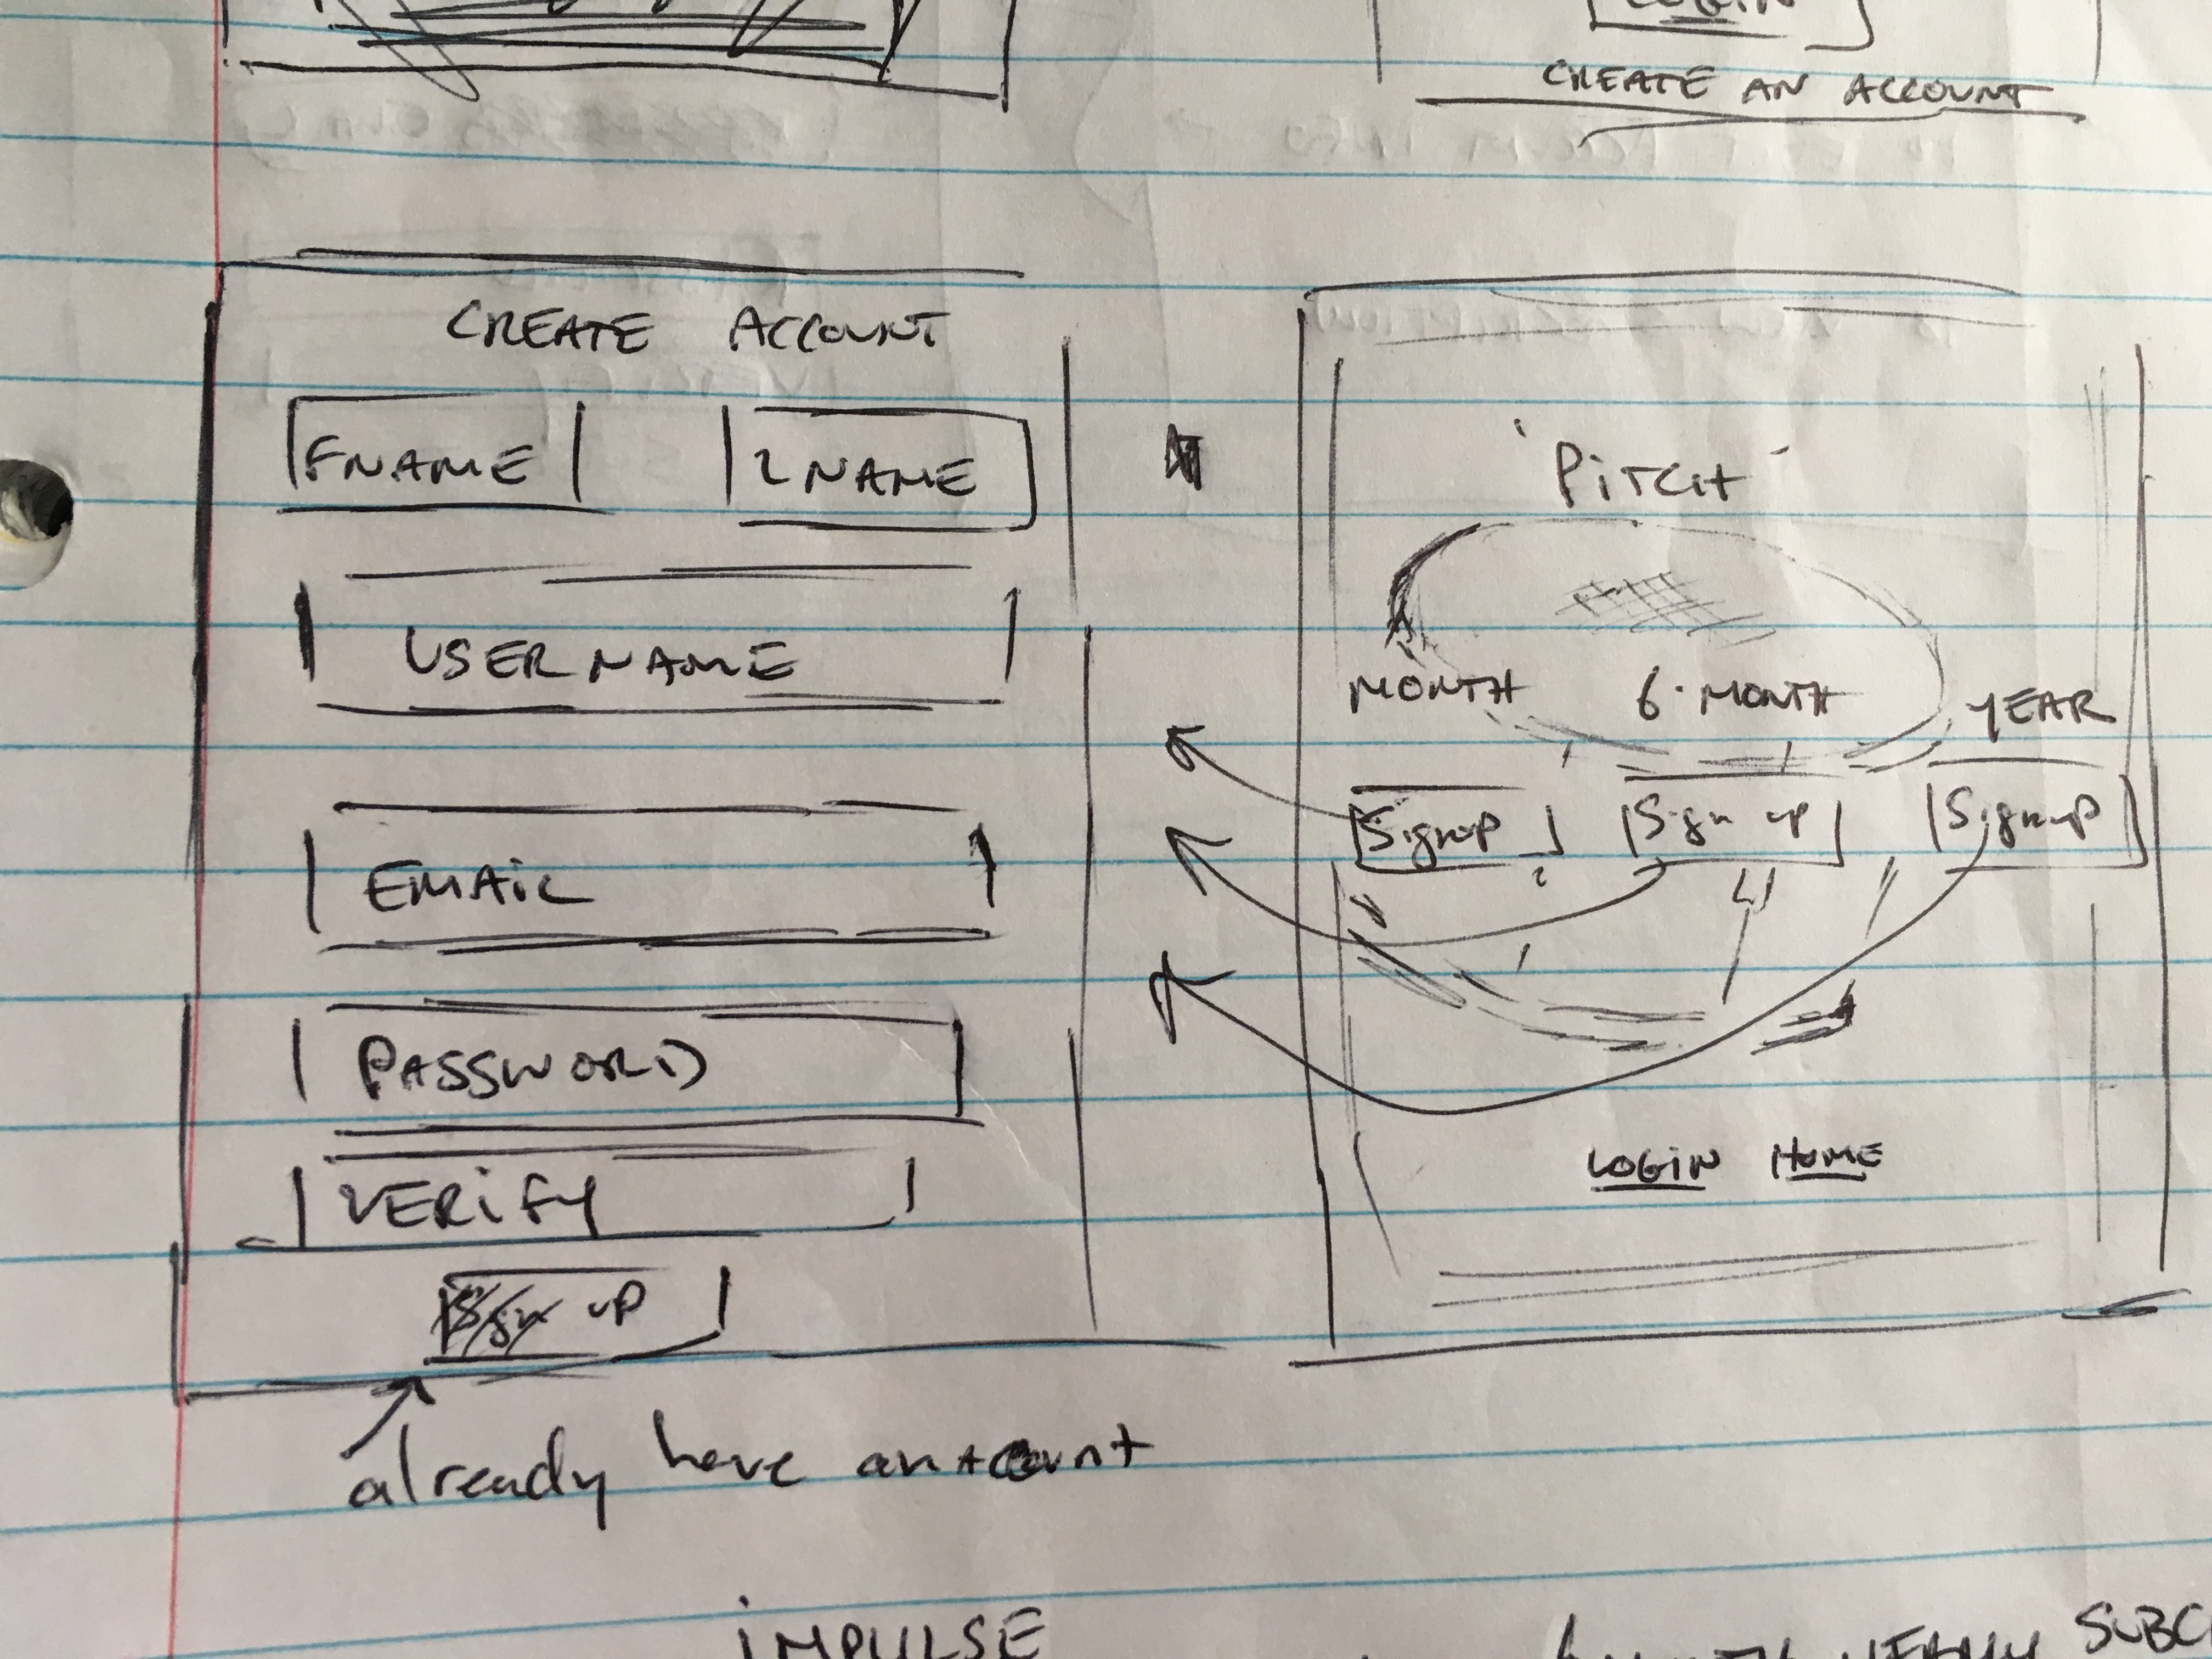 LOGIN
CREATE AN ACCOUNT
CREATE ACCOUNT
FNAME LNAME
USERNAME
EMAIL
PASSWORD
VERIFY
Sign up
already have an account
'PITCH'
MONTH 6-MONTH YEAR
Signup Sign up Signup
LOGIN HOME
IMPULSE
YEARLY SUBC